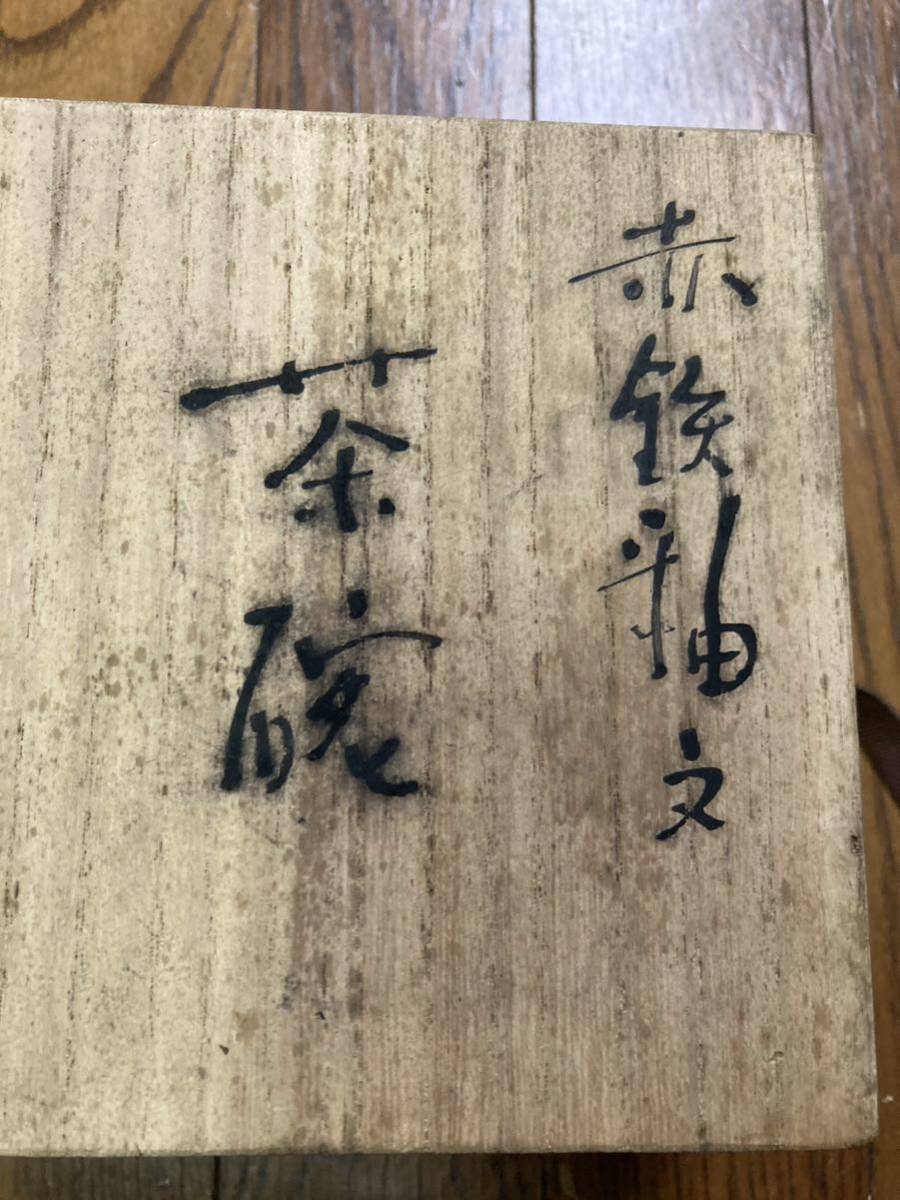 赤鉄釉文
茶碗